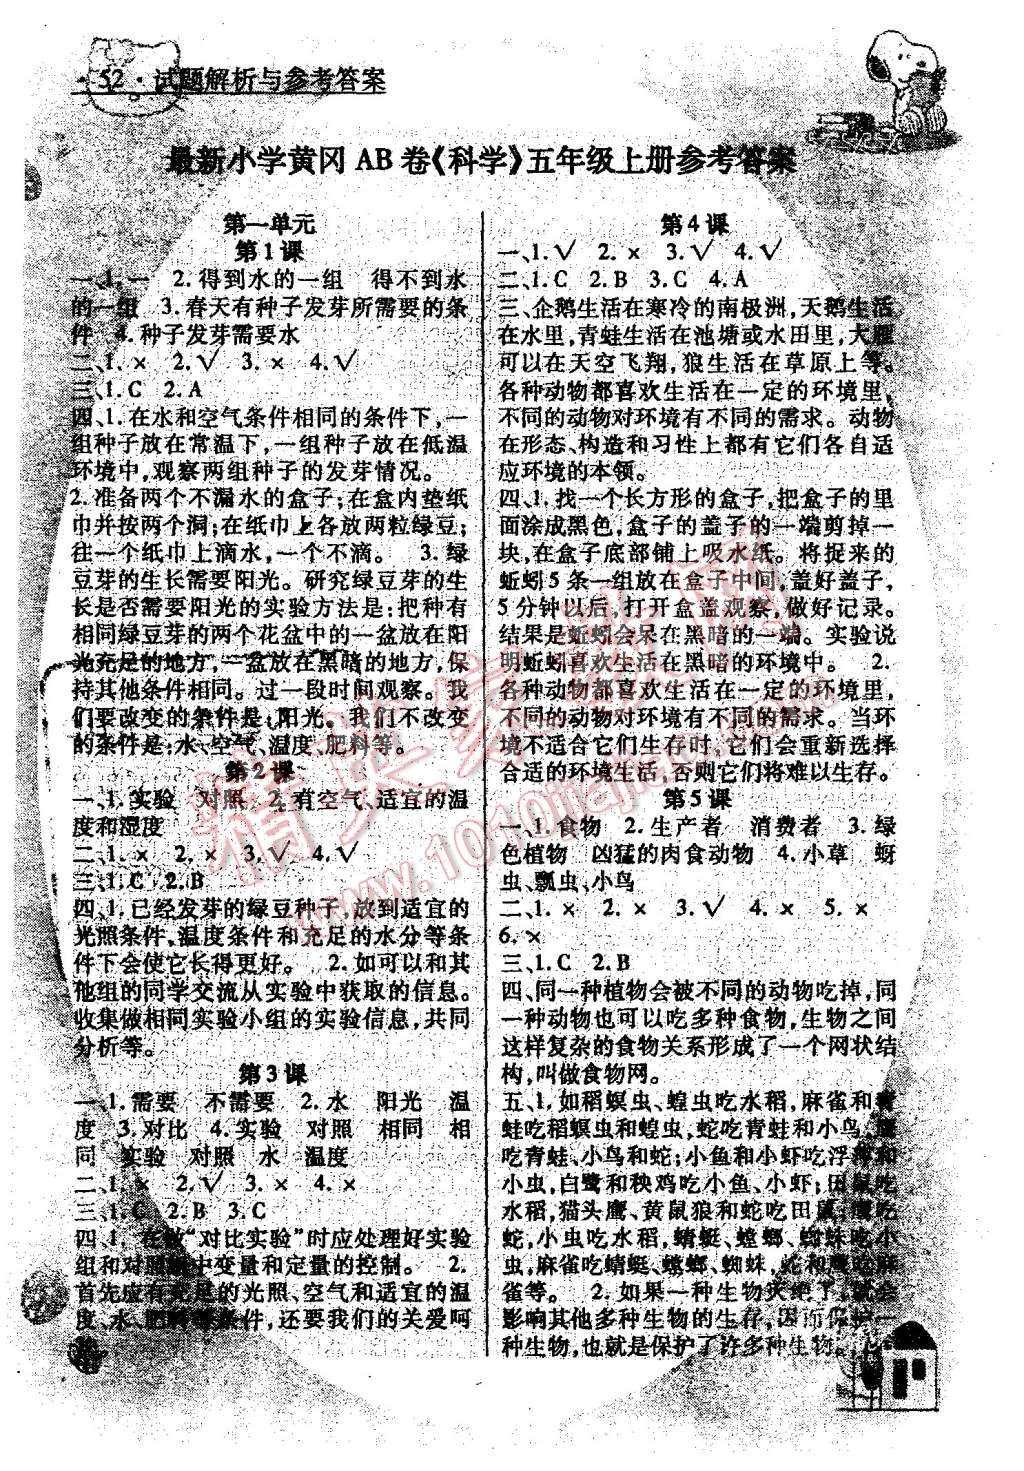 · 52 · 试题解析与参考答案
最新小学黄冈 AB 卷《科学》五年级上册参考答案
第一单元
第 1 课
一、1. 一 2. 得到水的一组 得不到水
的一组 3. 春天有种子发芽所需要的条
件 4. 种子发芽需要水
二、1. × 2. √ 3. × 4. √
三、1. C 2. A
四、1. 在水和空气条件相同的条件下,一
组种子放在常温下,一组种子放在低温
环境中,观察两组种子的发芽情况。
2. 准备两个不漏水的盒子;在盒内垫纸
巾并按两个洞;在纸巾上各放两粒绿豆;
往一个纸巾上滴水,一个不滴。 3. 绿
豆芽的生长需要阳光。研究绿豆芽的生
长是否需要阳光的实验方法是:把种有
相同绿豆芽的两个花盆中的一盆放在阳
光充足的地方,一盆放在黑暗的地方,保
持其他条件相同。过一段时间观察。我
们要改变的条件是:阳光。我们不改变
的条件是:水、空气、温度、肥料等。
第 2 课
一、1. 实验 对照 2. 有空气、适宜的温
度和湿度
二、1. × 2. × 3. √ 4. √
三、1. C 2. B
四、1. 已经发芽的绿豆种子,放到适宜的
光照条件,温度条件和充足的水分等条
件下会使它长得更好。 2. 如可以和其
他组的同学交流从实验中获取的信息。
收集做相同实验小组的实验信息,共同
分析等。
第 3 课
一、1. 需要 不需要 2. 水 阳光 温
度 3. 对比 4. 实验 对照 相同 相
同 实验 对照 水 温度
二、1. × 2. √ 3. × 4. ×
三、1. C 2. B 3. C
四、1. 在做“对比实验”时应处理好实验
组和对照组中变量和定量的控制。 2.
首先应有充足的光照、空气和适宜的温
度、水、肥料等条件,还要我们的关爱呵
第 4 课
一、1. √ 2. × 3. √ 4. √
二、1. C 2. B 3. C 4. A
三、企鹅生活在寒冷的南极洲,天鹅生活
在水里,青蛙生活在池塘或水田里,大雁
可以在天空飞翔,狼生活在草原上等。
各种动物都喜欢生活在一定的环境里,
不同的动物对环境有不同的需求。动物
在形态、构造和习性上都有它们各自适
应环境的本领。
四、1. 找一个长方形的盒子,把盒子的里
面涂成黑色,盒子的盖子的一端剪掉一
块,在盒子底部铺上吸水纸。将捉来的
蚯蚓 5 条一组放在盒子中间,盖好盖子,
5 分钟以后,打开盒盖观察,做好记录。
结果是蚯蚓会呆在黑暗的一端。实验说
明蚯蚓喜欢生活在黑暗的环境中。 2.
各种动物都喜欢生活在一定的环境里,
不同的动物对环境有不同的需求。当环
境不适合它们生存时,它们会重新选择
合适的环境生活,否则它们将难以生存。
第 5 课
一、1. 食物 2. 生产者 消费者 3. 绿
色植物 凶猛的肉食动物 4. 小草 蚜
虫、瓢虫、小鸟
二、1. × 2. × 3. √ 4. × 5. ×
6. ×
三、1. C 2. B
四、同一种植物会被不同的动物吃掉,同
一种动物也可以吃多种食物,生物之间
这样复杂的食物关系形成了一个网状结
构,叫做食物网。
五、1. 如稻螟虫、蝗虫吃水稻,麻雀和青
蛙吃稻螟虫和蝗虫,蛇吃青蛙和小鸟,鹰
吃青蛙、小鸟和蛇;小鱼和小虾吃浮萍和
小虫,白鹭和秧鸡吃小鱼、小虾;田鼠吃
水稻,猫头鹰、黄鼠狼和蛇吃田鼠;鹰吃
蛇,小虫吃水稻,蜻蜓、螳螂、蜘蛛吃小
虫,麻雀吃蜻蜓、螳螂、蜘蛛,蛇和鹰吃麻
雀等。 2. 如果一种生物灭绝了,就会
影响其他多种生物的生存,因而保护一
种生物,也就是保护了许多种生物。
精英家教网
www.1010jiajiao.com